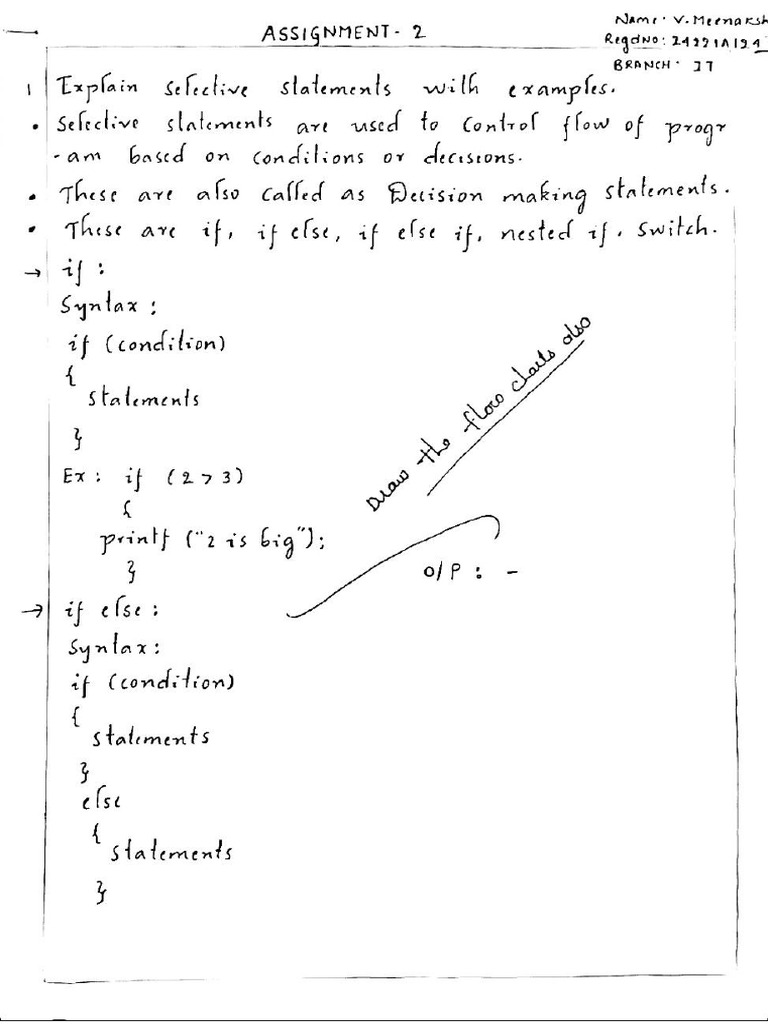 ASSIGNMENT - 2
Name: V. Meenaksh
Regd No:
BRANCH:
1 Explain selective statements with examples.
• Selective statements are used to control flow of progr
-am based on conditions or decisions.
• These are also called as Decision making statements.
• These are if, if else, if else if, nested if, switch.
→ if :
Syntax :
if (condition)
{
statements
}
Ex : if (2 > 3)
{
printf ("2 is big");
}
O/P : -
Draw the flow charts also
→ if else :
Syntax :
if (condition)
{
statements
}
else
{
statements
}